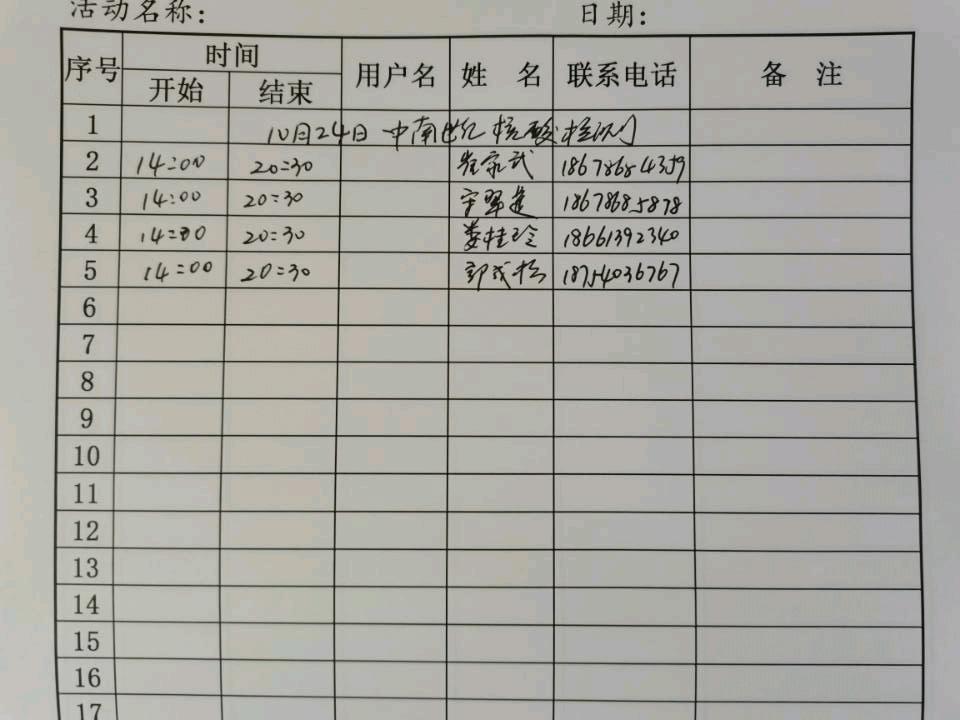 活动名称： 日期：
序号 时间 用户名 姓 名 联系电话 备 注
开始 结束
1 10月24日 中南世纪 核酸检测
2 14:00 20:30 崔家武 18678684359
3 14:00 20:30 18678685878
4 14:00 20:30 娄桂玲 18661392340
5 14:00 20:30 郭成松 18754036767
6
7
8
9
10
11
12
13
14
15
16
17